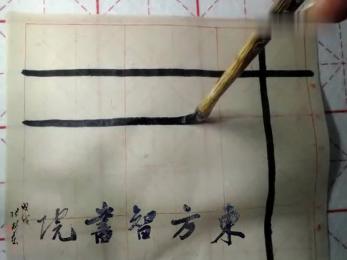 東方智書院